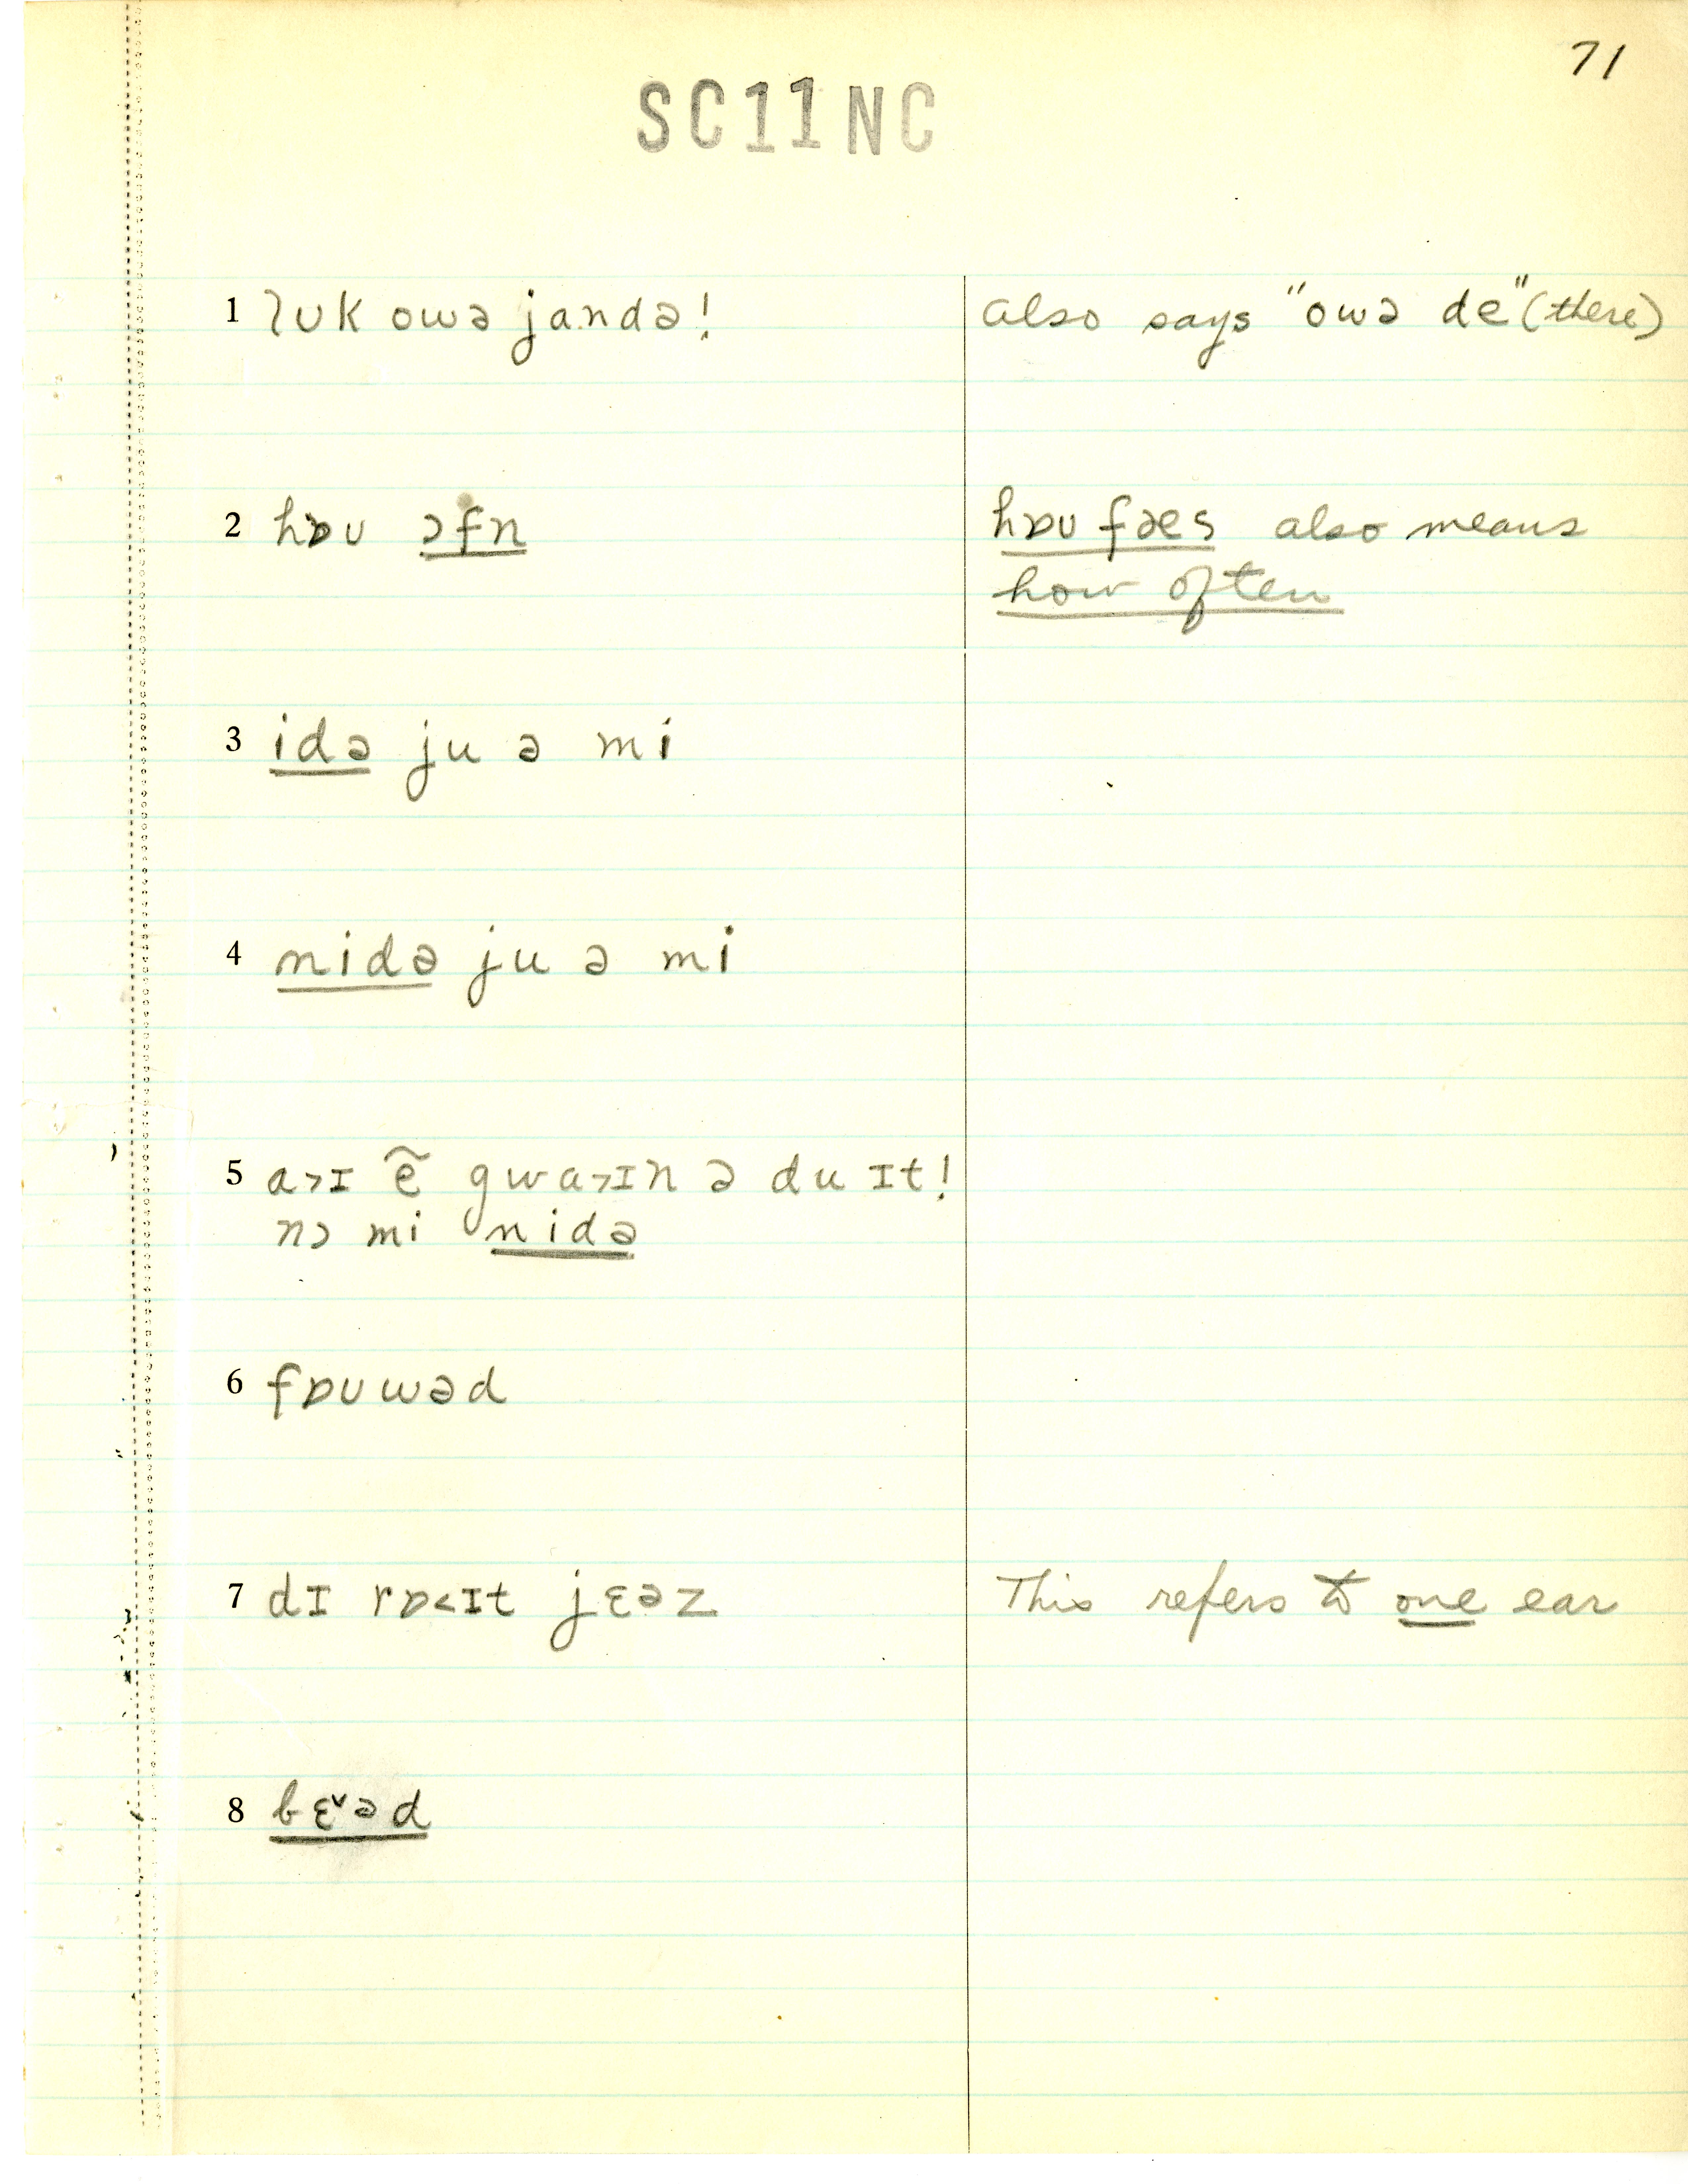 71
SC11NC
1 lʊk owə jandə! also says "owə de" (there)
2 hɒʊ ɔfn hɒʊ fæs also means
how often
3 idə ju ə mi
4 nidə ju ə mi
5 a˃ɪ ẽ gwa˃ɪn ə du ɪt!
nɔ mi nidə
6 fɒʊwəd
7 dɪ rɒ˂ɪt jɛəz This refers to one ear
8 bɛ˅əd